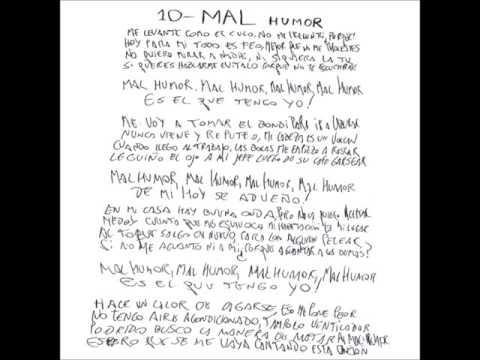 10- MAL HUMOR
ME LEVANTÉ COMO EL CULO, NO ME PREGUNTES PORQUE!
HOY PARA MI TODO ES FEO, MEJOR QUE NO ME
NO QUIERO MIRAR A NADIE, NI SIQUIERA LA TV
SI QUERES HABLARME EVITALO PORQUE NO TE ESCUCHARÉ
MAL HUMOR, MAL HUMOR, MAL HUMOR, MAL HUMOR
ES EL QUE TENGO YO!
ME VOY A TOMAR EL BONDI PARA IR A LABURAR
NUNCA VIENE Y RE PUTEO, MI CABEZA ES UN VOLCAN
CUANDO LLEGO AL TRABAJO, LAS BOLAS ME EMPIEZO A ROSCAR
LE GUIÑO EL OJO A MI JEFE LUEGO DE SU CAFE
MAL HUMOR, MAL HUMOR, MAL HUMOR, MAL HUMOR
DE MI HOY SE ADUEÑO!
EN MI CASA HAY BUENA ONDA, PERO NO LA PUEDO ACEPTAR
ME DOY CUENTA QUE ME EQUIVOCO MI HABITACION ES MI LUGAR
AL TOQUE SALGO DE NUEVO, CON ALGUIEN PELEAR?
SI NO ME AGUANTO NI A MI, PORQUE AGUANTAR A LOS DEMAS!
MAL HUMOR, MAL HUMOR, MAL HUMOR, MAL HUMOR
ES EL QUE TENGO YO!
HACE UN CALOR DE CAGARSE, ESO ME PONE PEOR
NO TENGO AIRE ACONDICIONADO, TAMPOCO VENTILADOR
PODRIDO BUSCO LA MANERA DE MATAR AL MAL HUMOR
ESPERO QUE SE ME VAYA CANTANDO ESTA CANCION